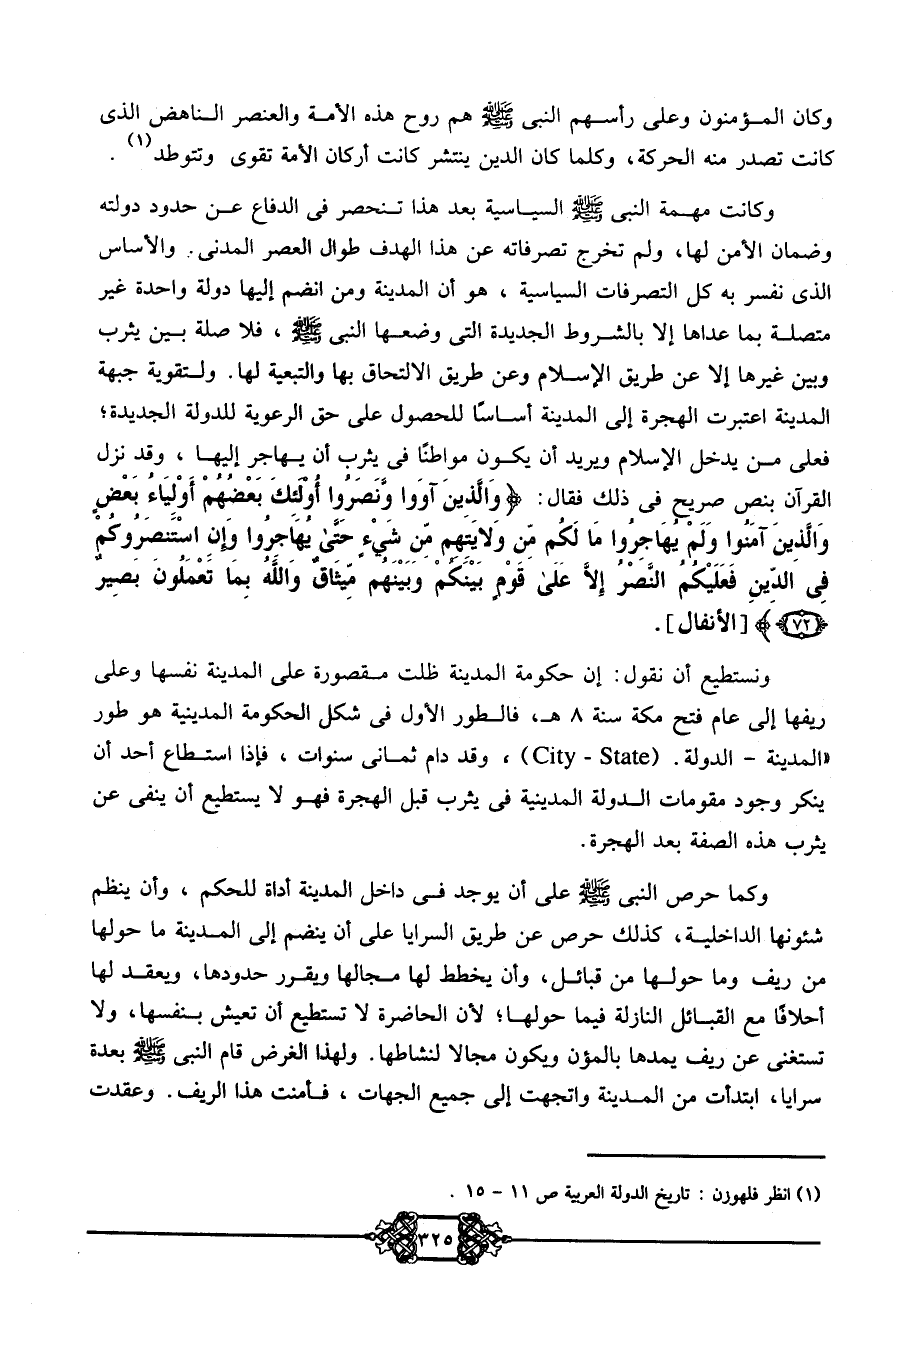 وكان المؤمنون وعلى رأسهم النبى ﷺ هم روح هذه الأمة والعنصر الناهض الذى
كانت تصدر منه الحركة، وكلما كان الدين ينتشر كانت أركان الأمة تقوى وتتوطد(١) .
وكانت مهمة النبى ﷺ السياسية بعد هذا تنحصر فى الدفاع عن حدود دولته
وضمان الأمن لها، ولم تخرج تصرفاته عن هذا الهدف طوال العصر المدنى. والأساس
الذى نفسر به كل التصرفات السياسية ، هو أن المدينة ومن انضم إليها دولة واحدة غير
متصلة بما عداها إلا بالشروط الجديدة التى وضعها النبى ﷺ ، فلا صلة بين يثرب
وبين غيرها إلا عن طريق الإسلام وعن طريق الالتحاق بها والتبعية لها. ولتقوية جبهة
المدينة اعتبرت الهجرة إلى المدينة أساسًا للحصول على حق الرعوية للدولة الجديدة؛
فعلى من يدخل الإسلام ويريد أن يكون مواطنًا فى يثرب أن يهاجر إليها ، وقد نزل
القرآن بنص صريح فى ذلك فقال: ﴿ وَالَّذِينَ آوَوا وَّنَصَرُوا أُوْلَئِكَ بَعْضُهُمْ أَوْلِيَاءُ بَعْضٍ
وَالَّذِينَ آمَنُوا وَلَمْ يُهَاجِرُوا مَا لَكُم مِّن وَلايَتِهِم مِّن شَيْءٍ حَتَّىٰ يُهَاجِرُوا وَإِنِ اسْتَنصَرُوكُمْ
فِى الدِّينِ فَعَلَيْكُمُ النَّصْرُ إِلاَّ عَلَىٰ قَوْمٍ بَيْنَكُمْ وَبَيْنَهُم مِّيثَاقٌ وَاللَّهُ بِمَا تَعْمَلُونَ بَصِيرٌ
(٧٢) ﴾ [الأنفال].
ونستطيع أن نقول: إن حكومة المدينة ظلت مقصورة على المدينة نفسها وعلى
ريفها إلى عام فتح مكة سنة ٨ هـ، فالطور الأول فى شكل الحكومة المدينية هو طور
«المدينة - الدولة. (City - State) ، وقد دام ثمانى سنوات ، فإذا استطاع أحد أن
ينكر وجود مقومات الدولة المدينية فى يثرب قبل الهجرة فهو لا يستطيع أن ينفى عن
يثرب هذه الصفة بعد الهجرة.
وكما حرص النبى ﷺ على أن يوجد فى داخل المدينة أداة للحكم ، وأن ينظم
شئونها الداخلية، كذلك حرص عن طريق السرايا على أن ينضم إلى المدينة ما حولها
من ريف وما حولها من قبائل، وأن يخطط لها مجالها ويقرر حدودها، ويعقد لها
أحلافًا مع القبائل النازلة فيما حولها؛ لأن الحاضرة لا تستطيع أن تعيش بنفسها، ولا
تستغنى عن ريف يمدها بالمؤن ويكون مجالا لنشاطها. ولهذا الغرض قام النبى ﷺ بعدة
سرايا، ابتدأت من المدينة واتجهت إلى جميع الجهات ، فأمنت هذا الريف. وعقدت
(١) انظر فلهوزن : تاريخ الدولة العربية ص ١١ - ١٥ .
٣٢٥